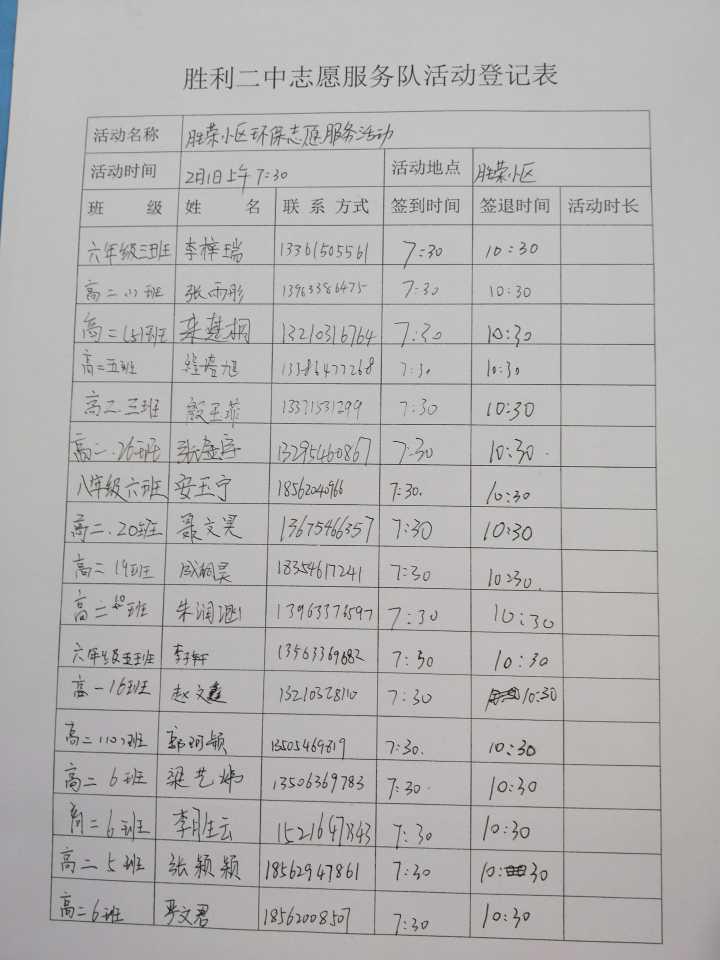 胜利二中志愿服务队活动登记表
活动名称 胜荣小区环保志愿服务活动
活动时间 2月1日上午7:30 活动地点 胜荣小区
班 级 姓 名 联 系 方式 签到时间 签退时间 活动时长
六年级三班 李梓瑞 13361505561 7:30 10:30
高二(1)班 张雨彤 13963386475 7:30 10:30
高二(5)班 栾楚桐 13210316764 7:30 10:30
高二五班 旭 13386477268 7:30 10:30
高二.三班 殷玉菲 13371531299 7:30 10:30
高二.26班 张 宇 13295460867 7:30 10:30.
八年级六班 安玉宁 18562040966 7:30. 10:30
高二.20班 聂文昊 13675466357 7:30 10:30
高二19班 成桐昊 18354617241 7:30 10:30.
高二 班 朱润 13963376597 7:30 10:30
六年级五班 李轩 13563369682 7:30 10:30
高一16班 赵文鑫 13210328110 7:30 10:30
高二(10)班 郭珂颖 13505469819 7:30. 10:30
高二6班 梁艺 13506369783 7:30. 10:30
高二6班 李胜云 1521647843 7:30 10:30
高二5班 张颖颖 18562947861 7:30 10:30
高二6班 严文君 18562008507 7:30 10:30